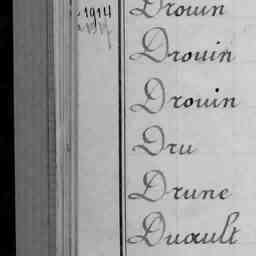 1914 Drouin
Drouin
Drouin
Dru
Drune
Duault